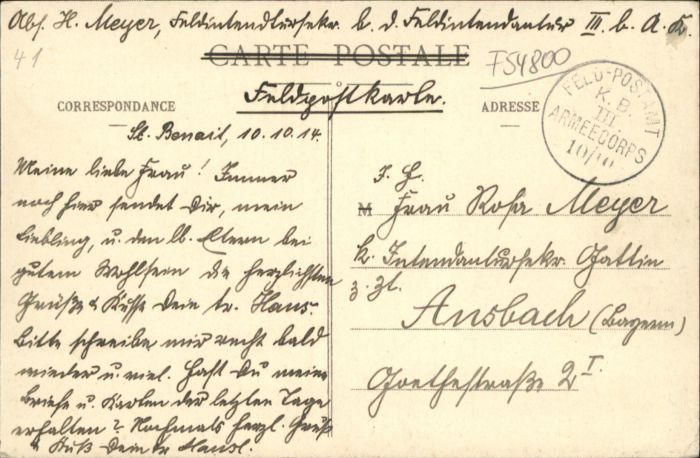 Abs. H. Meyer, Feldintendtursekr. b. d. Feldintendantur III. b. A. K.
41
CARTE POSTALE
F54800
Feldpostkarte.
CORRESPONDANCE
ADRESSE
FELD-POSTAMT
K. B.
III.
ARMEECORPS
10/10
St. Benoit, 10.10.14.
Meine liebe Frau! Immer
noch hier sendet Dir, mein
Liebling, u. den lb. Eltern bei
gutem Wohlsein die herzlichsten
Grüße & Küsse Dein tr. Hans.
Bitte schreibe mir recht bald
wieder u. viel. Hast Du meine
Briefe u. Karten der letzten Tage
erhalten? Nochmals herzl. Gruß
& Kuß Dein tr Hansl.
I. H.
M Frau Rosa Meyer
K. Intendantursekr. Gattin
z. Zt.
Ansbach (Bayern)
Goethestraße 2 I.